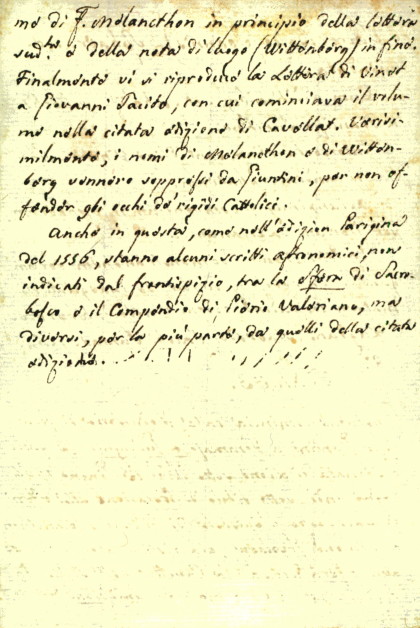 me di F. Melancthon in principio della lettera
sud.ta e della nota di luogo (Wittenberg) in fine.
Finalmente vi si riproduce la Lettera di Vinet
a Giovanni Tacito, con cui cominciava il volu-
me nella citata edizione di Cavellat. Verisi-
milmente, i nomi di Melancthon e di Witten-
berg vennero soppressi da Giuntini, per non of-
fender gli occhi de' rigidi Cattolici.
Anche in questa, come nell'edizion Parigina
del 1556, stanno alcuni scritti astronomici, non
indicati dal frontispizio, tra la sfera di Sacro-
bosco e il Compendio di Pierio Valeriano, ma
diversi, per la più parte, da quelli della citata
edizione.